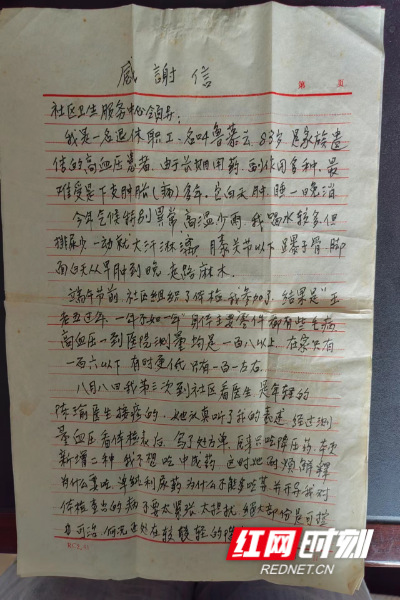 感謝信
第 页
社区卫生服务中心领导:
我是一名退休职工,名叫鲁慕云,83岁,是家族遗
传的高血压患者。由于长期用药,副作用多种,最
难受是下支肿胀(痛)多年,它白天肿,睡一晚消
今年气候特别异常,高温少雨,我喝水较多但
排尿少,一动就大汗淋漓,膝关节以下踝子骨、脚
面白天从早肿到晚,走路麻木。
端午节前,社区组织了体检,我参加了,结果是"王
老五过年,一年不如一年"身体主要零件都有些毛病
高血压一到医院测量均是一百八以上,在家只有
一百六以下,有时更低只有一百一左右。
八月八日我第三次到社区看医生,是年轻的
陈瑜医生接诊的,她认真听了我的表述,经过测
量血压看体检表后,写了处方单,原来只吃降压药,本
新增二种,我不想吃中成药,这时她耐烦解释
为什么要吃,单纯利尿药为什么不能单吃等,并开导我对
体检查出的病不要太紧张,太担忧,绝大部份是可控
可治,何况
红网时刻
REDNET.CN